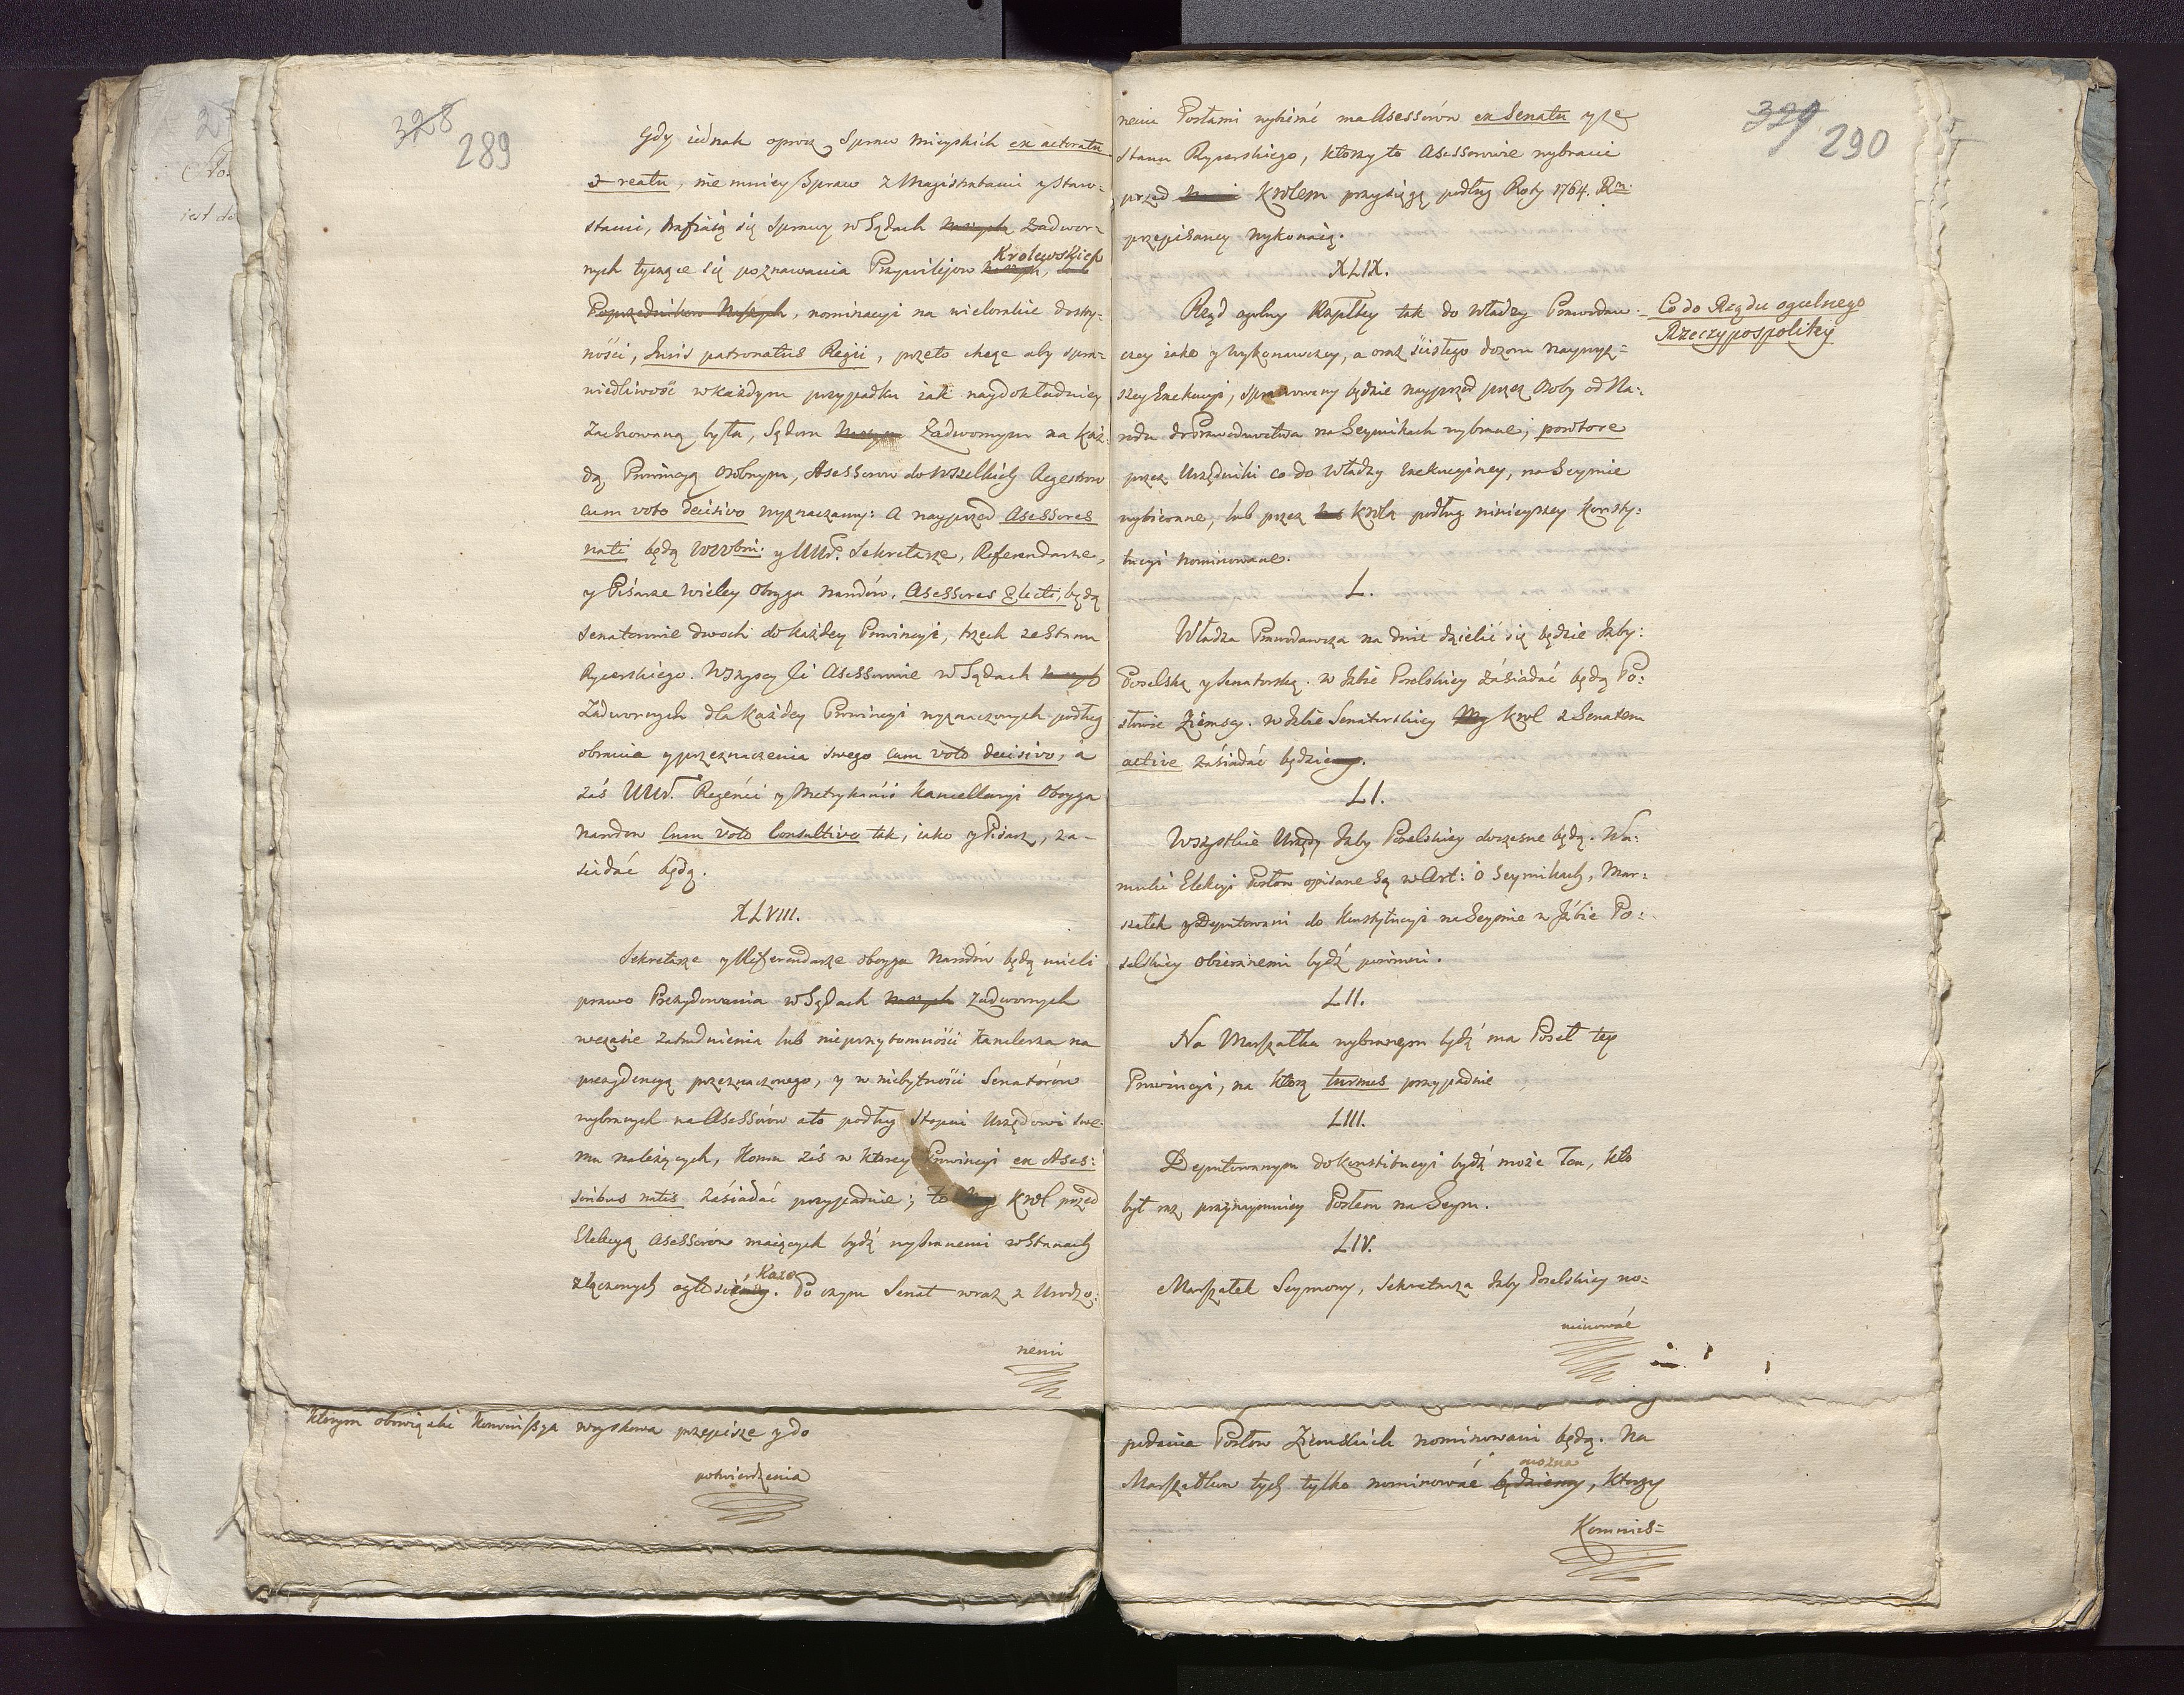 328
289
Gdy iednak oprocz Spraw mieyskich ex actoratu
et reatu, nie mniey Spraw z Magistratami y Staro-
stami, trafiaią się sprawy w Sądach naszych Zadwor-
Krolewskich
nych tyczące się poznawania Przywilejow naszych,
Poprzednikow Naszych, nominacyi na wielorakie dosto-
ności, Juris patronatus Regii, przeto chcąc aby spra-
wiedliwość w każdym przypadku iak naydokładniey
Zachowaną była, Sądom naszym Zadwornym na Każ-
dą Prowincyą osobnym, Assessorow do wszelkich Regestrow
cum voto decisivo wyznaczamy: A nayprzed Asessores
nati będą WWobni. y UUr. Sekretarze, Referendarze,
y Pisarze Wielcy Oboyga Narodów, Asessores Electi, będą
Senatorowie dwoch do każdey Prowincyi, trzech ze Stanu
Rycerskiego. Wszyscy Ci Asessorowie w Sądach naszych
Zadwornych dla każdey Prowincyi wyznaczonych podług
obrania y przeznaczenia swego cum voto decisivo, a
zaś UUr. Regenci y Metrykanci Kancellaryi Oboyga
Narodow Cum voto Consultivo tak, iako y Pisarz, za-
siadać będą.
XLVIII.
Sekretarze y Referendarze oboyga Narodów będą mieli
prawo Prezydowania w Sądach naszych Zadwornych
wczasie zatrudnienia lub nieprzytomności Kanclerza na
prezydencyą przeznaczonego, y w niebytności Senatorów
wybranych na Asessorów a to podług Stopni Urzędowi swe-
mu należących, Komu zaś w ktorey Prowincyi ex Ases:
soribus natis zasiadać przypadnie; to My Krol przed
Elekcyą Asessorów maiących bydź wybranemi w Stanach
Kaze
złączonych ogłosić. Po czym Senat wraz z Urodzo:
nemi
Ktorym obowiązki Kommissya woyskowa przepisze y do
potwierdzenia
329
290
nemi Posłami wybierać ma Asessorów ex Senatu y ze
Stanu Rycerskiego, ktorzy to Asessorowie wybrani
przed Krolem przysięgę podług Roty 1764. Ru.
przepisaney wykonaią.
XLIX.
Co do Rządu ogulnego
Rzeczypospolitey
Rząd ogolny Rzpltey tak do Władzy Prawodaw-
czey iako y wykonawczey, a oraz ścisłego dozoru naywyż-
szey Exekucyi, sprawowany będzie nayprzed przez Osoby od Na:
rodu do Prawodawctwa na Seymikach wybrane; powtore
przez Urzędniki co do władzy Exekucyiney, na Seymie
wybierane, lub przez Krola podług ninieyszey Konsty:
tucyi nominowane.
L.
Władza Prawodawcza na dwie dzielić się będzie Izby:
Poselską y Senatorską. w Izbie Poselskiey zasiadać będą Po:
słowie Ziemscy. w Izbie Senatorskiey My Krol z Senatem
active zasiadać będziemy.
LI.
Wszystkie Urzędy Izby Poselskiey doczesne będą. Wa:
runki Elekcyi Posłow opisane są w Art: o Seymikach, Mar:
szałek y Deputowani do Konstytucyi na Seymie w Izbie Po:
selskiey obieranemi bydź powinni.
LII.
Na Marszałka wybranym bydź ma Poseł tey
Prowincyi, na ktorą turnus przypadnie
LIII.
Deputowanym do Konstitucyi bydź może Ten, kto
był raz przynaymniey Posłem na Seym.
LIV.
Marszałek Seymowy, Sekretarza Izby Poselskiey no:
minować
podania Posłow Ziemskich nominowani będą. Na
można
Marszałkow tych tylko nominować będziemy, Ktorzy
Kommis=